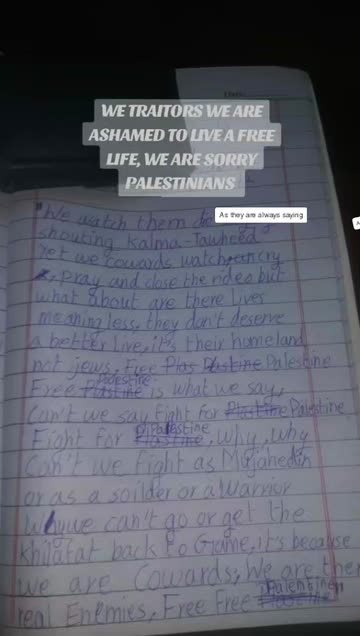 WE TRAITORS WE ARE
ASHAMED TO LIVE A FREE
LIFE, WE ARE SORRY
PALESTINIANS
As they are always saying
"We watch them die
shouting kalma-Tawheed"
Yet we cowards watch, cry
, pray and close the rides but
what about are there lives
meaningless, they don't deserve
a better live, it's their homeland
not jews, Free Palestine
Free Palestine is what we say,
Can't we say Fight for Palestine
Fight for Palestine, why, why
Can't we Fight as Mujahedin
or as a soilder or a Warrior
Why we can't go or get the
khilafat back to Game, it's because
we are Cowards, We are their
real Enemies, Free Free Palentine